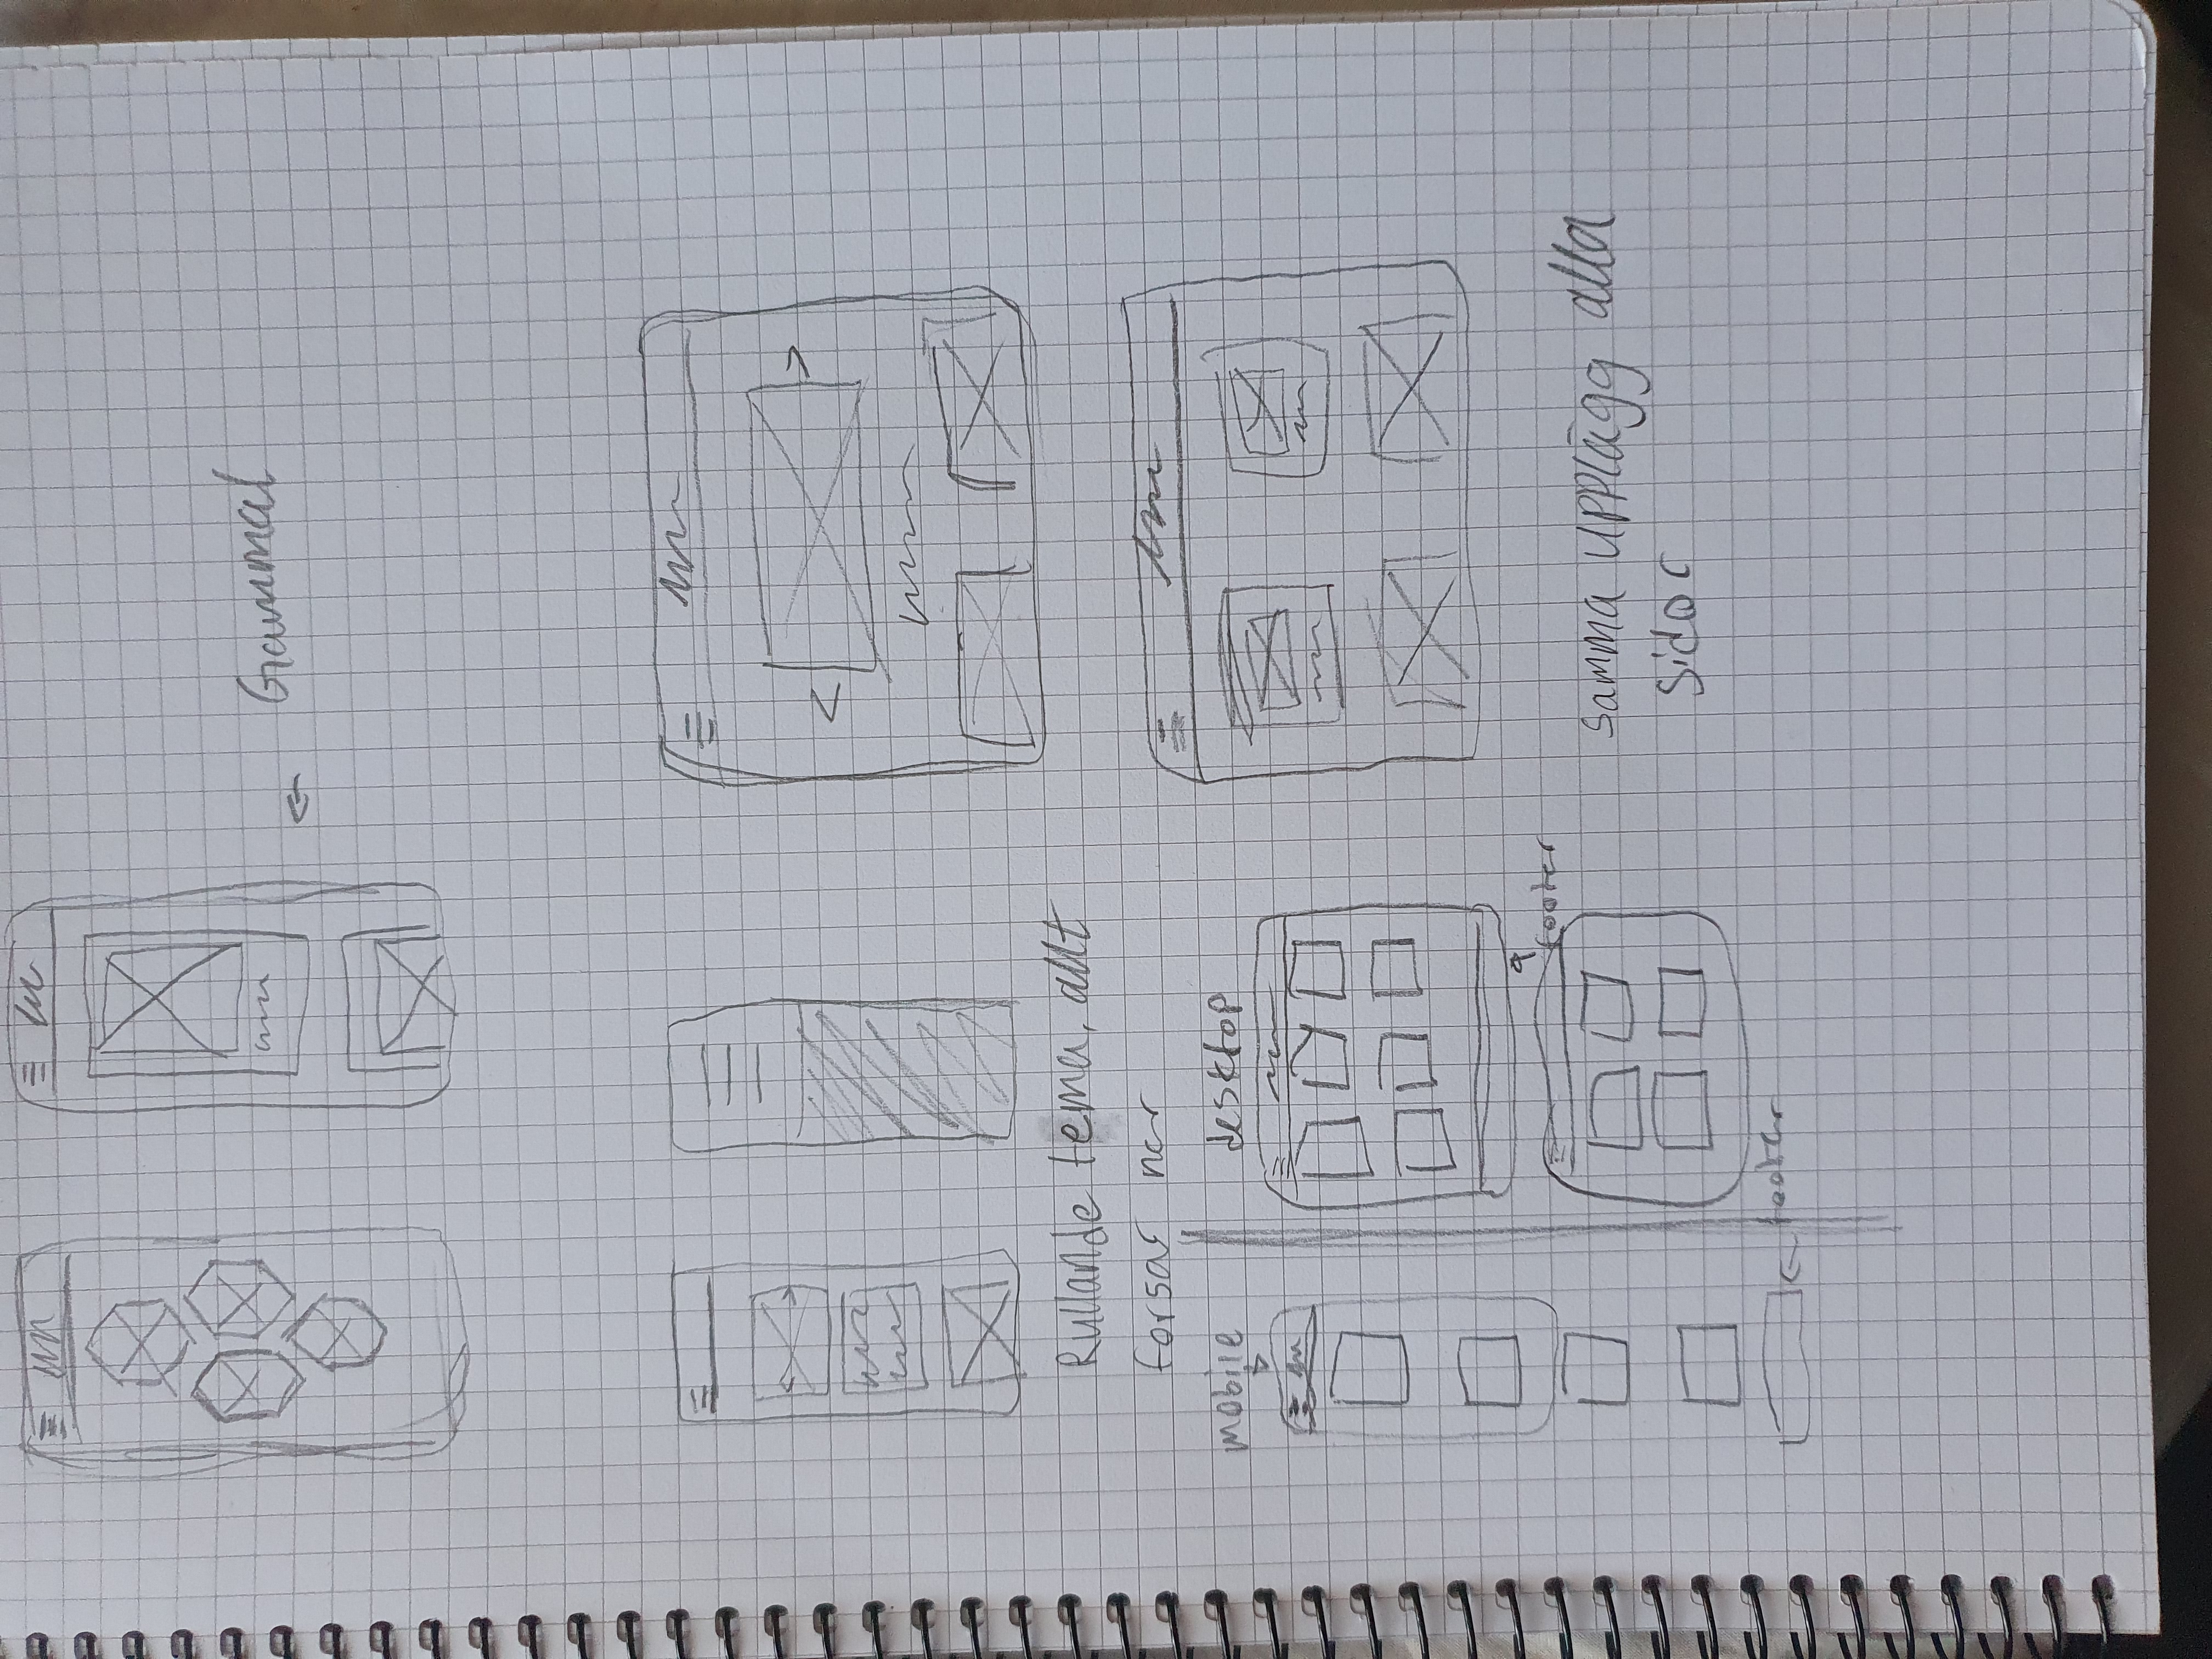 Grammal
Rullande tema, allt
forsar ner
mobile
desktop
footer
footer
samma upplägg alla
sidor